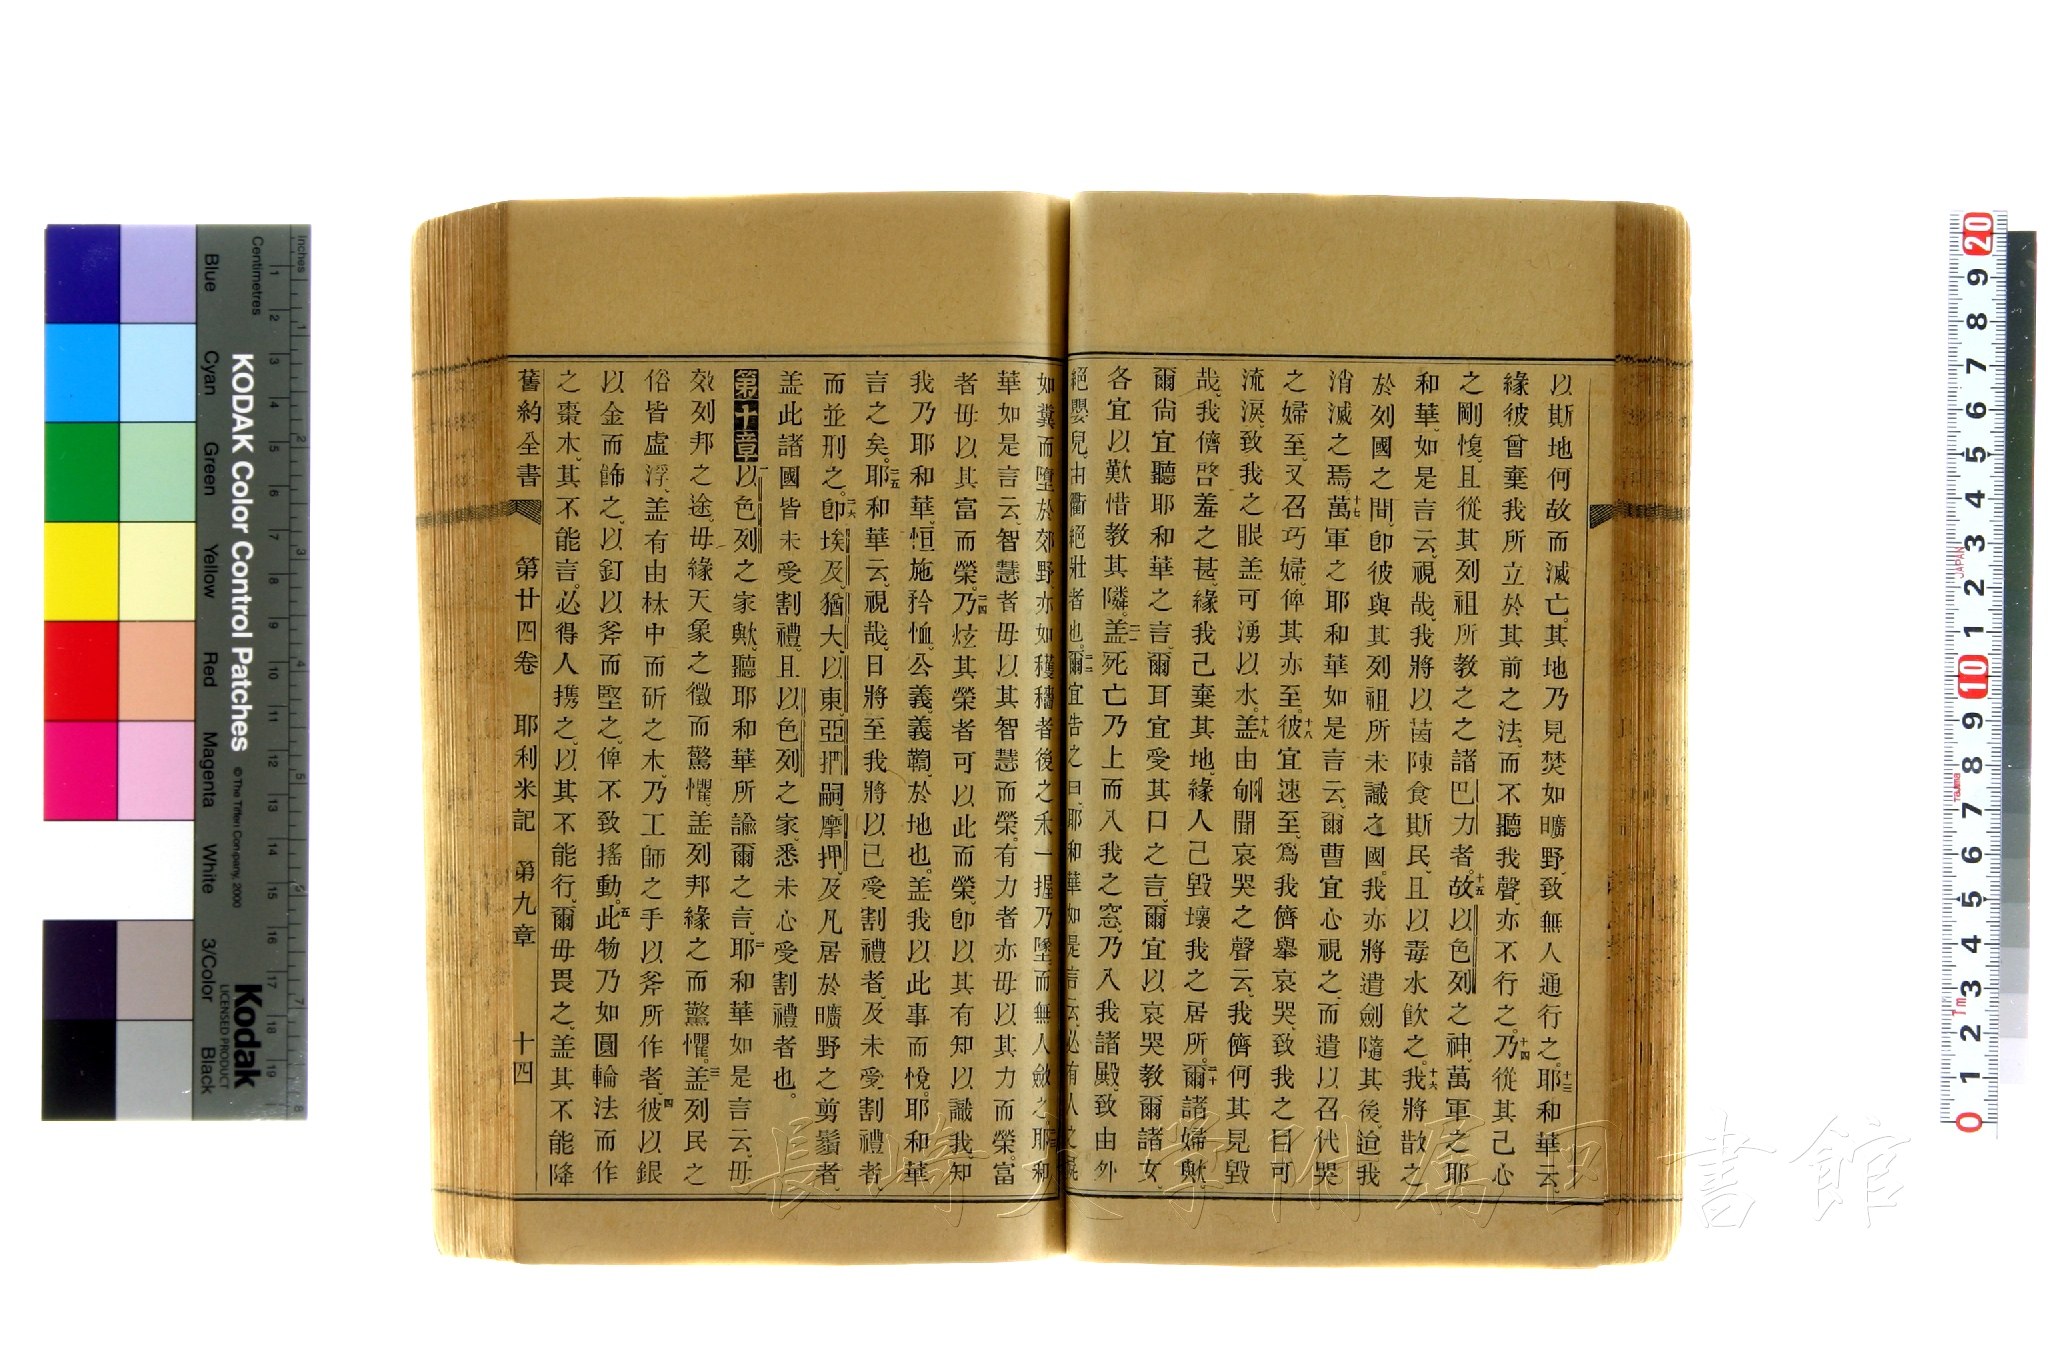 以斯地何故而滅亡。其地乃見焚如曠野、致無人通行之。十三耶和華云、
緣彼曾棄我所立於其前之法、而不聽我聲、亦不行之。十四乃從其己心
之剛愎、且從其列祖所教之之諸巴力者。十五故以色列之神、萬軍之耶
和華、如是言云、視哉、我將以茵陳食斯民、且以毒水飲之。十六我將散之
於列國之間、卽彼與其列祖所未識之國。我亦將遣劍隨其後、迨我
消滅之焉。十七萬軍之耶和華如是言云、爾曹宜心視之、而遣以召代哭
之婦至、又召巧婦、俾其亦至。十八彼宜速至、爲我儕舉哀哭、致我之目可
流淚、致我之眼盖可湧以水。十九盖由郇聞哀哭之聲云、我儕何其見毀
哉、我儕啓羞之甚、緣我己棄其地、緣人己毀壞我之居所。二十爾諸婦歟、
爾尙宜聽耶和華之言、爾耳宜受其口之言、爾宜以哀哭教爾諸女、
各宜以歎惜教其隣。二一盖死亡乃上而入我之窓、乃入我諸殿、致由外
絕嬰兒、由衢絕壯者也。二二爾宜告之曰、耶和華如是言云、必有人之屍
如糞而墮於郊野、亦如穫穡者後之禾一握乃墜而無人斂之。二三耶和
華如是言云、智慧者毋以其智慧而榮。有力者亦毋以其力而榮。富
者毋以其富而榮。二四乃炫其榮者可以此而榮、卽以其有知以識我、知
我乃耶和華、恒施矜恤、公義、義鞫、於地也。盖我以此事而悅。耶和華
言之矣。二五耶和華云、視哉。日將至我將以己受割禮者、及未受割禮者、
而並刑之。二六卽埃及、猶大、以東、亞捫嗣、摩押、及凡居於曠野之剪鬚者、
盖此諸國皆未受割禮、且以色列之家、悉未心受割禮者也。
第十章 一以色列之家歟、聽耶和華所諭爾之言、二耶和華如是言云、毋
效列邦之途。毋緣天象之徵而驚懼。盖列邦緣之而驚懼。三盖列民之
俗皆虛浮、盖有由林中而斫之木、乃工師之手以斧所作者、四彼以銀
以金而飾之、以釘以斧而堅之、俾不致搖動。五此物乃如圓輪法而作
之棗木、其不能言。必得人攜之、以其不能行。爾毋畏之、盖其不能降
舊約全書 第廿四卷 耶利米記 第九章 十四
長崎大学附属図書館
KODAK Color Control Patches
© The Tiffen Company, 2000
Kodak
LICENSED PRODUCT
Inches
Centimetres
Blue
Cyan
Green
Yellow
Red
Magenta
White
3/Color
Black
JAPAN